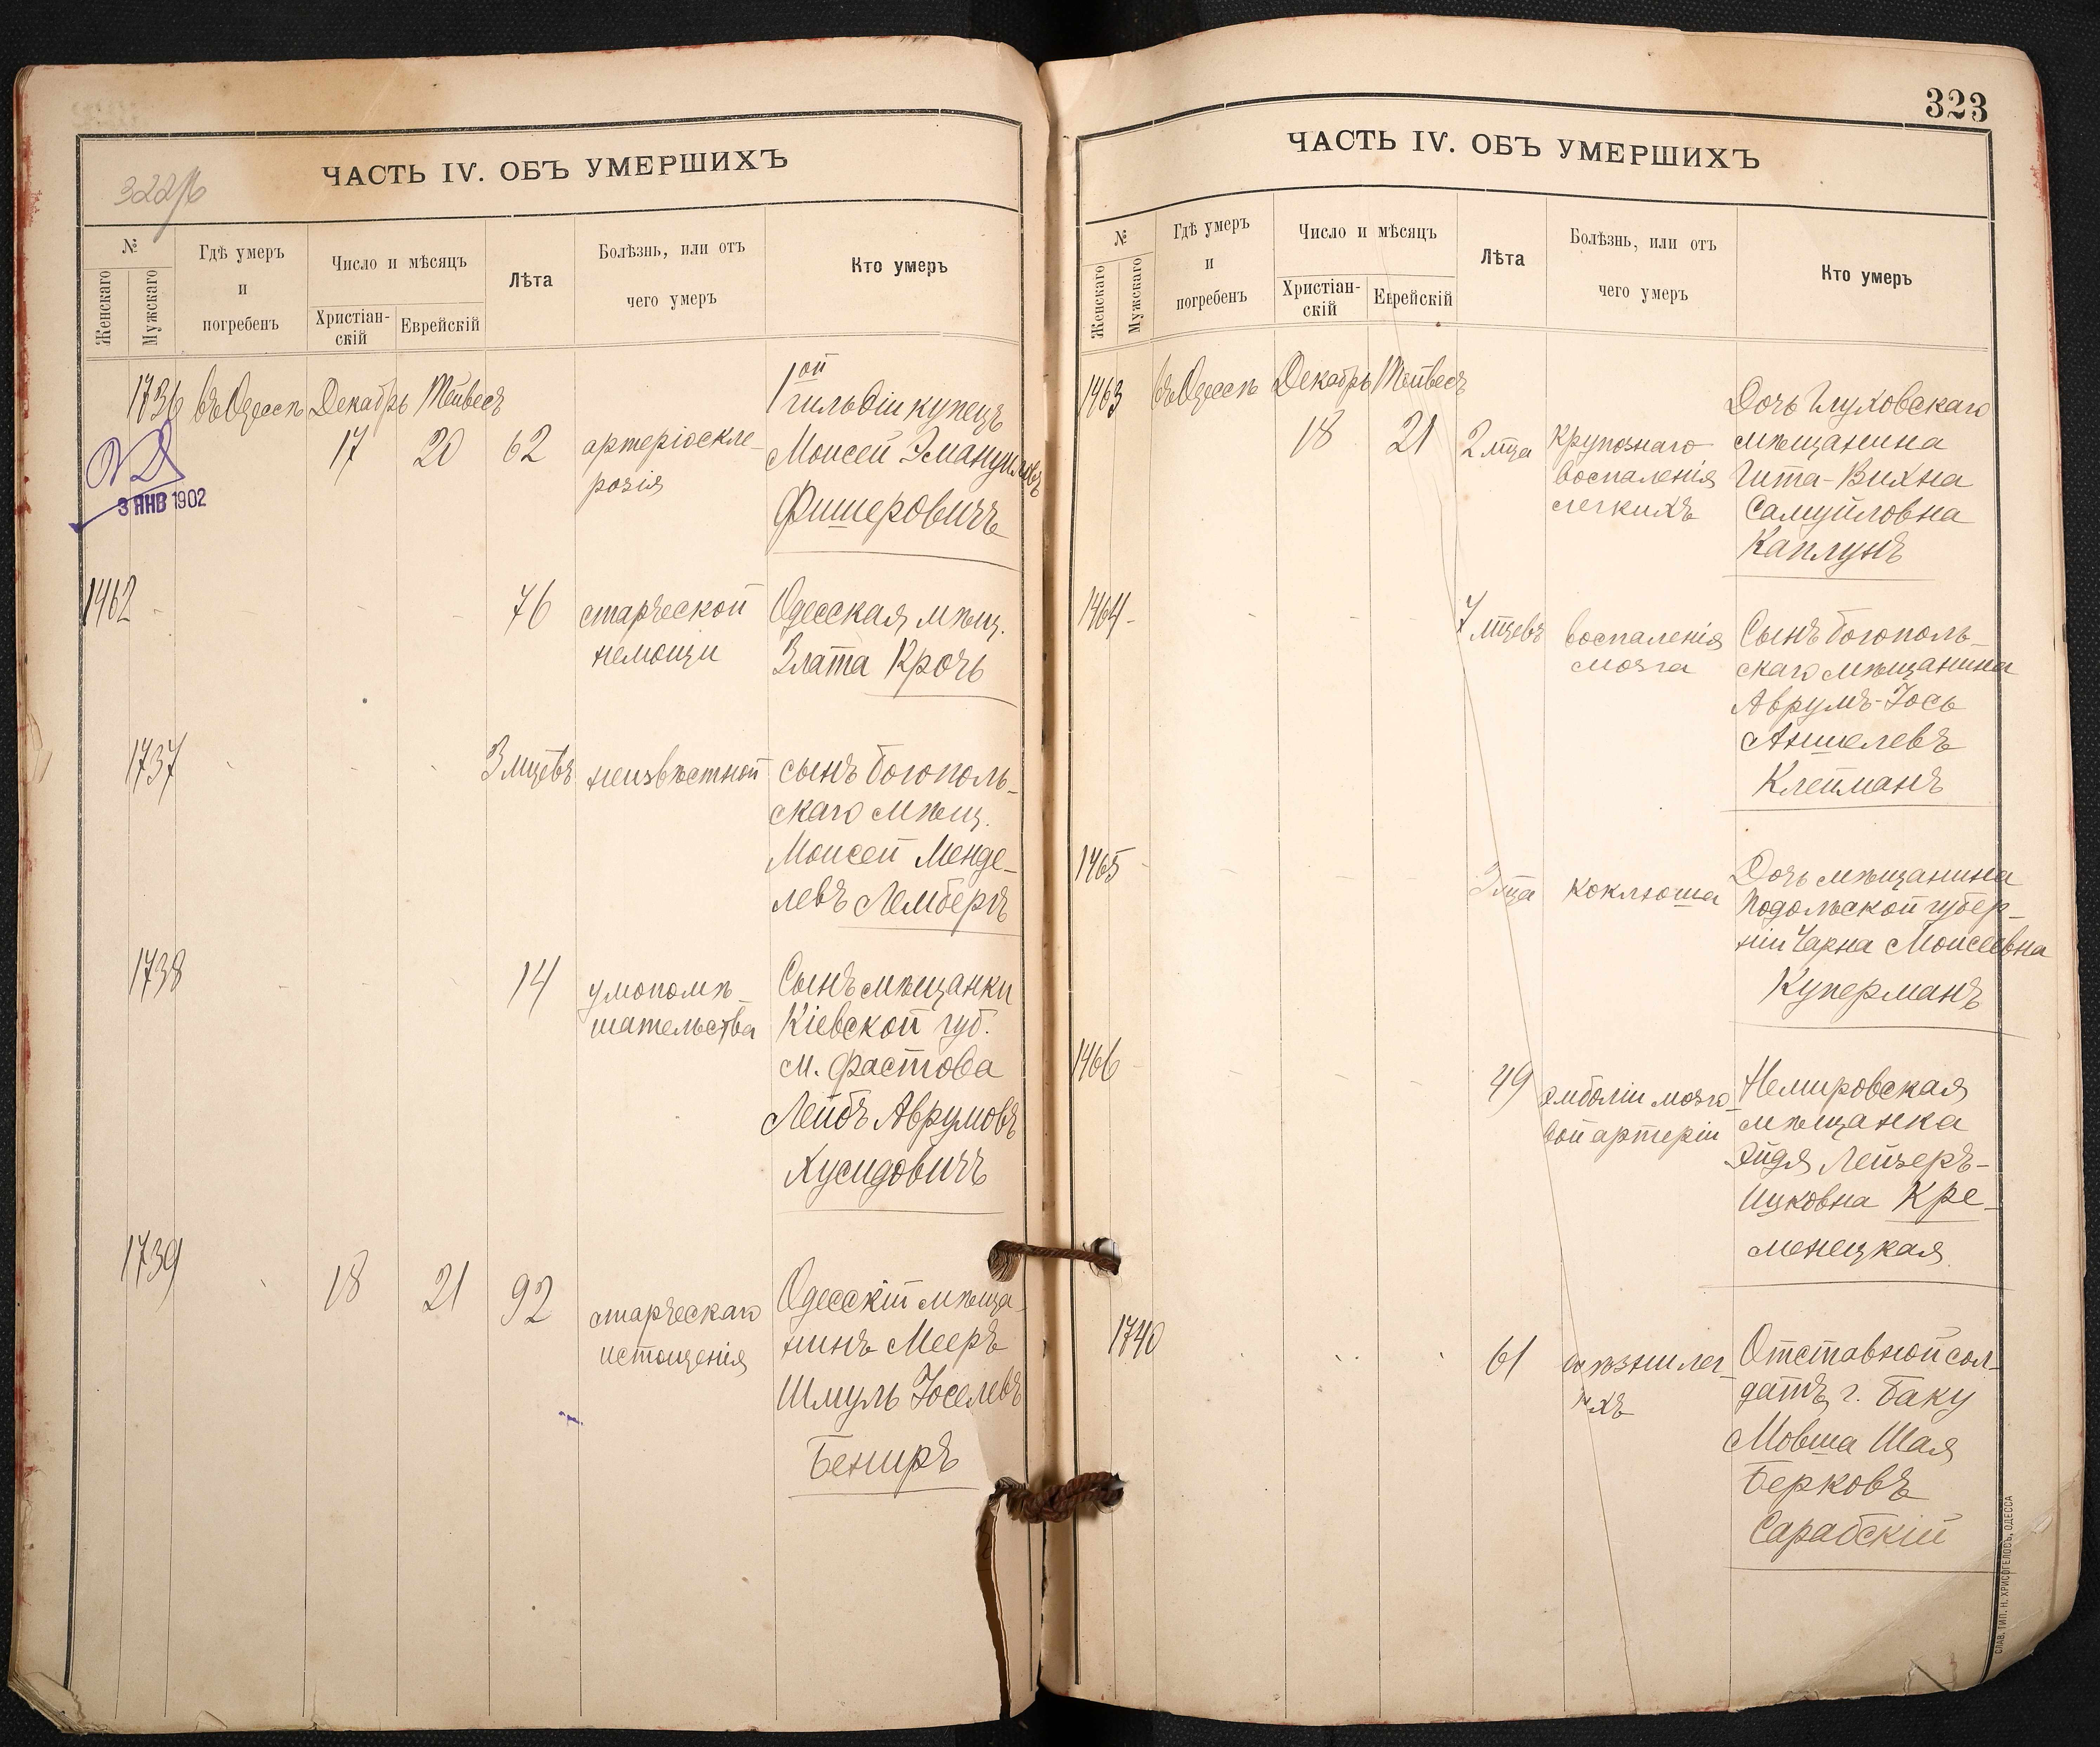 322/б
ЧАСТЬ IV. ОБЪ УМЕРШИХЪ
№
Женскаго
Мужскаго
Гдѣ умеръ
и
погребенъ
Число и мѣсяцъ
Христіан-
скій
Еврейскій
Лѣта
Болѣзнь, или отъ
чего умеръ
Кто умеръ
1736 въ Одессѣ Декабрь Тейвесъ
17 20 62 артеріоскле-
розія
1ой
гильдіи купецъ
Моисей Эмануиловъ
Фишеровичъ
3 ЯНВ 1902
1462 76 старческой
немощи
Одесская мѣщ.
Злата Крочь
1737 3 мцевъ неизвѣстной
сынъ богополь-
скаго мѣщ.
Моисей Менде-
левъ Лембергъ
1738 14 умопомѣ-
шательства
Сынъ мѣщанки
Кіевской губ.
м. Фастова
Лейбъ Аврумовъ
Хусидовичъ
1739 18 21 92 старческаго
истощенія
Одесскій мѣща-
нинъ Мееръ
Шмуль Іоселевъ
Бениръ
323
ЧАСТЬ IV. ОБЪ УМЕРШИХЪ
№
Женскаго
Мужскаго
Гдѣ умеръ
и
погребенъ
Число и мѣсяцъ
Христіан-
скій
Еврейскій
Лѣта
Болѣзнь, или отъ
чего умеръ
Кто умеръ
1463 въ Одессѣ Декабрь Тейвесъ
18 21 2 мца крупознаго
воспаленія
легкихъ
Дочь Глуховскаго
мѣщанина
Гита-Вихна
Самуйловна
Каплунъ
1464 7 мцевъ воспаленія
мозга
Сынъ богополь-
скаго мѣщанина
Аврумъ-Іось
Аншелевъ
Клейманъ
1465 3 мца коклюша
Дочь мѣщанина
Подольской губер-
ніи Чарна Моисеевна
Куперманъ
1466 49 эмболіи мозго-
вой артеріи
Немировская
мѣщанка
Эйдя Лейзеръ-
Ицковна Кре-
менецкая
1740 61 лег-
хъ
Отставной сол-
датъ г. Баку
Мовша Шая
Берковъ
Сарабскій
СЛАВ. ТИП. Н. ХРИСОГЕЛОСЪ, ОДЕССА